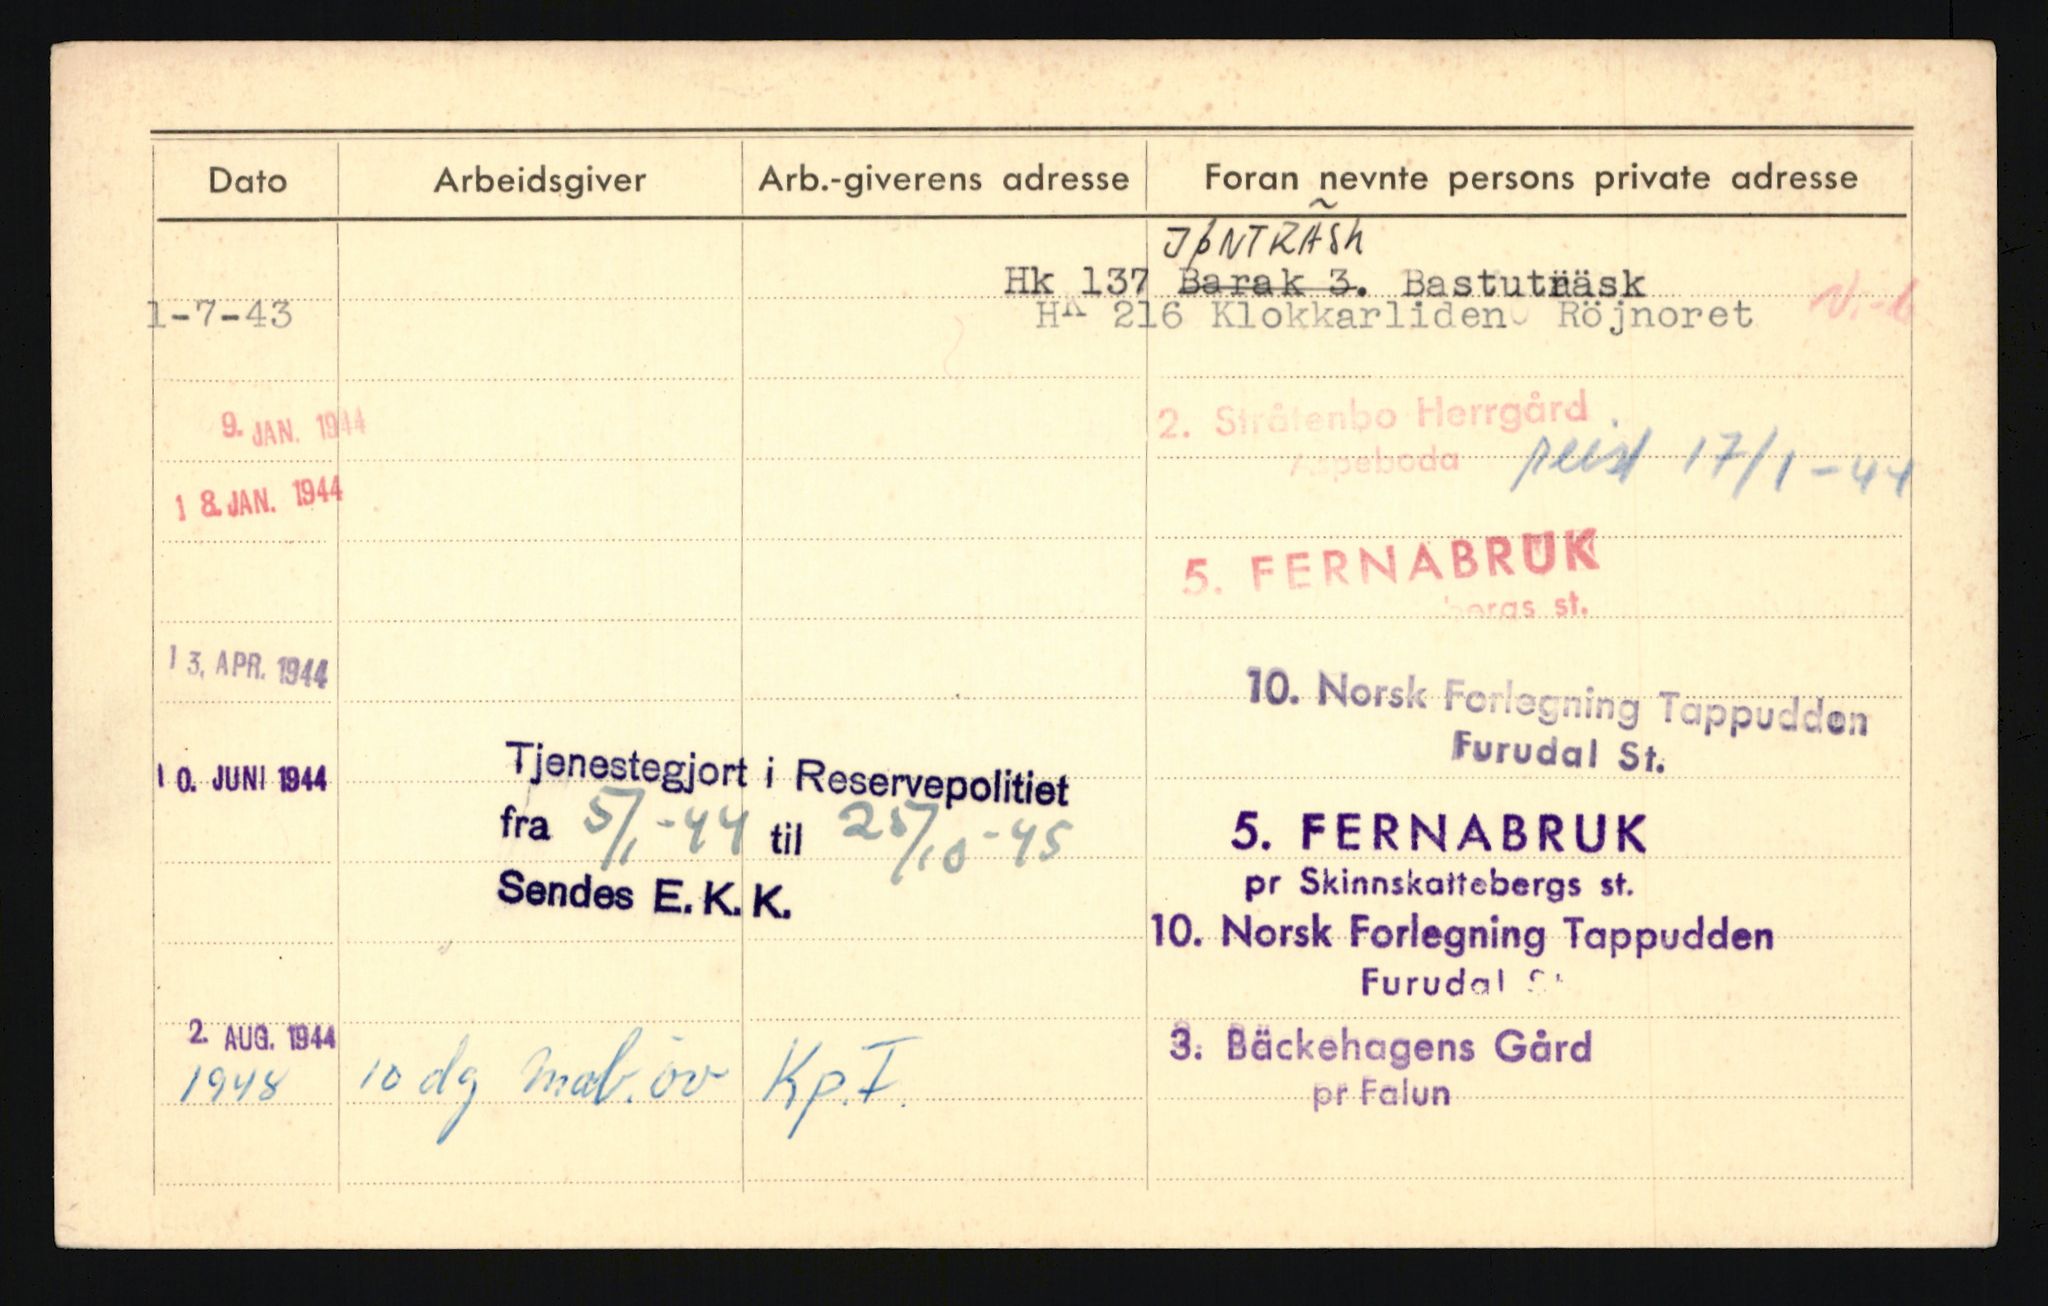 Dato Arbeidsgiver Arb.-giverens adresse Foran nevnte persons private adresse
JØNTRÄSK
Hk 137 Barak 3. Bastuträsk
1-7-43 HK 216 Klokkarliden Röjnoret
9. JAN. 1944 2. Stråtenbo Herrgård
Aspeboda reist 17/1-44
18. JAN. 1944
5. FERNABRUK
bergs st.
13. APR. 1944 10. Norsk Forlegning Tappudden
Furudal St.
10. JUNI 1944 Tjenestegjort i Reservepolitiet
fra 5/1-44 til 25/10-45
Sendes E.K.K.
5. FERNABRUK
pr Skinnskattebergs st.
10. Norsk Forlegning Tappudden
Furudal St
2. AUG. 1944 3. Bäckehagens Gård
pr Falun
1948 10 dg mob. öv Kp. I.